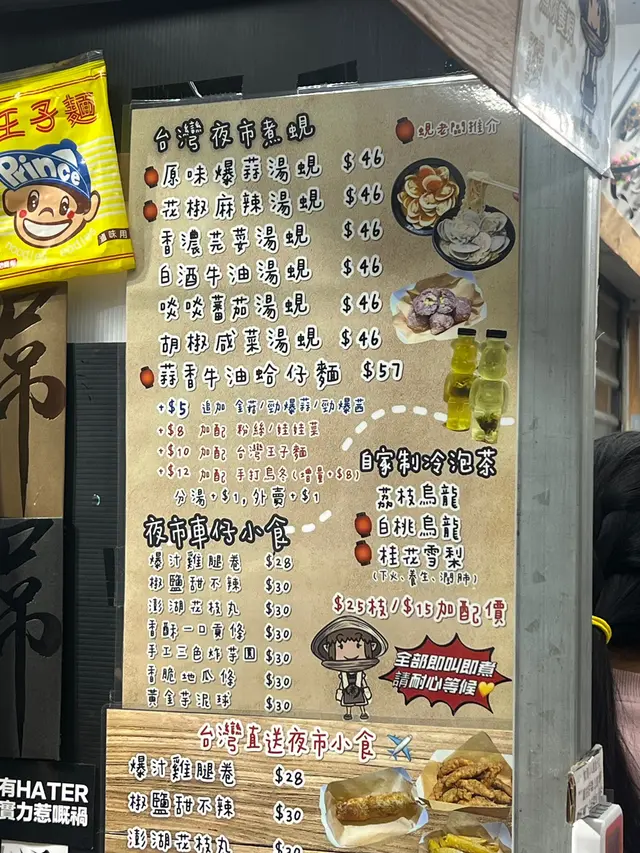 王子麵
Prince
台灣夜市煮蜆
蜆老闆推介
原味爆蒜湯蜆 $46
花椒麻辣湯蜆 $46
香濃芫荽湯蜆 $46
白酒牛油湯蜆 $46
啖啖蕃茄湯蜆 $46
胡椒咸菜湯蜆 $46
蒜香牛油蛤仔麵 $57
+$5 追加 金菇/勁爆蒜/勁爆茜
+$8 加配 粉絲/娃娃菜
+$10 加配 台灣王子麵
+$12 加配 手打烏冬(增量+$8)
分湯+$1, 外賣+$1
自家制冷泡茶
荔枝烏龍
白桃烏龍
桂花雪梨
(下火、養生、潤肺)
$25枝/$15加配價
夜市車仔小食
爆汁雞腿卷 $28
椒鹽甜不辣 $30
澎湖花枝丸 $30
香酥一口貢條 $30
手工三色炸芋圓 $30
香脆地瓜條 $30
黃金芋泥球 $30
全部即叫即煮
請耐心等候
台灣直送夜市小食
爆汁雞腿卷 $28
椒鹽甜不辣 $30
澎湖花枝丸 $30
有HATER
實力惹嘅禍